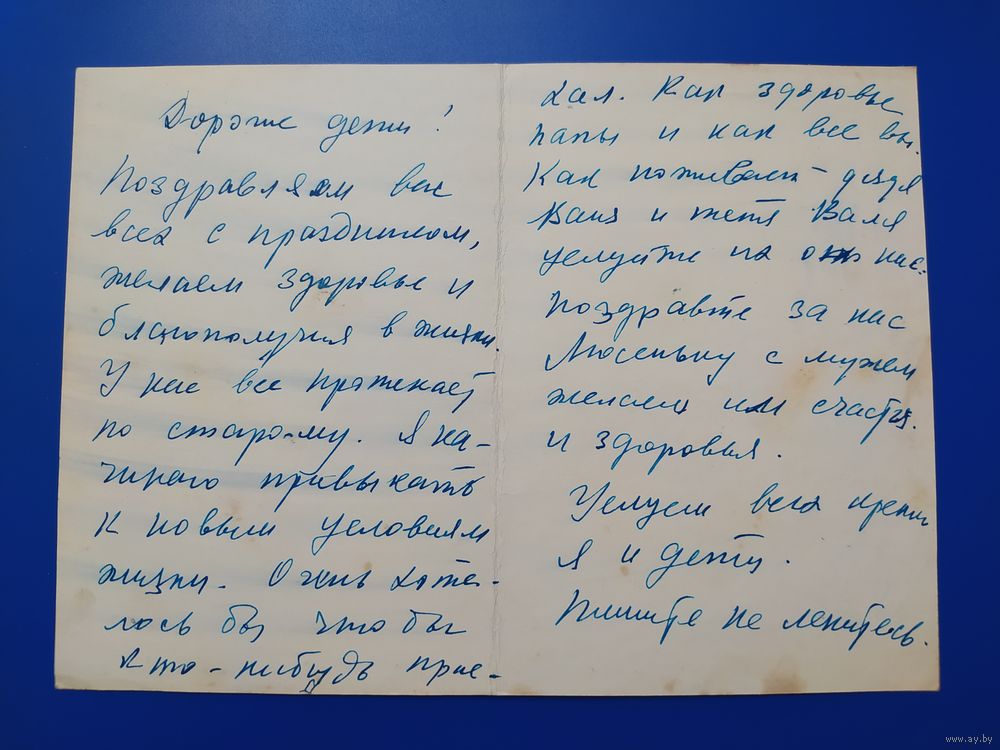 Дорогие дети!
Поздравляем вас
всех с праздником,
желаем здоровье и
благополучия в жизни.
У нас все протекает
по старо-му. Я на-
чинаю привыкать
к новым условиям
жизни. Очень хоте-
лось бы что бы
кто-нибудь прие-
хал. Как здоровье
папы и как все вы.
Как поживает дядя
Ваня и тетя Валя
целуйте их от нас.
Поздравте за нас
Люсеньку с мужем
желаем им счастья.
и здоровья.
Целуем всех крепко
я и дети.
Пишите не ленитесь.
www.ay.by